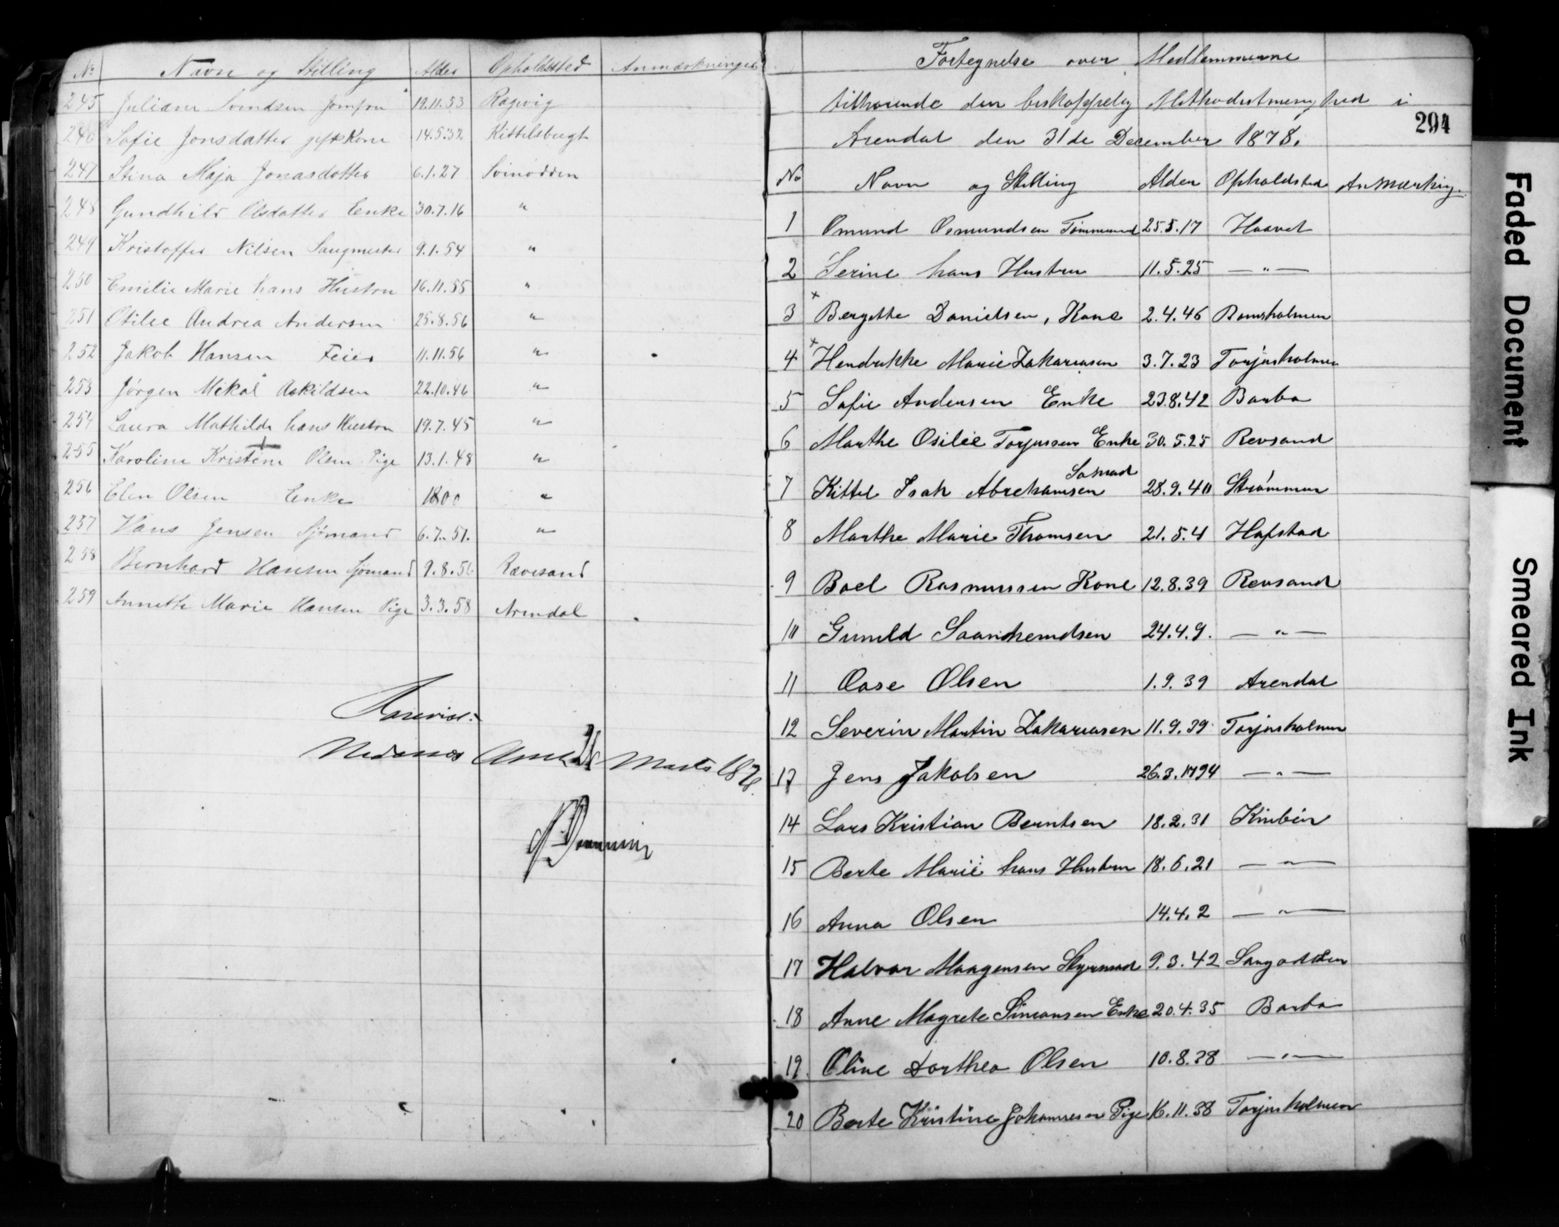 No Navn og Stilling Alder Opholdssted Anmærkninger
245 Juliane Svendsen Jomfru 19.11.53 Ragvig
246 Sofie Jonsdatter gift Kone 14.5.32 Kittelsbugt
247 Stina Maja Jonasdatter 6.1.27 Svinodden
248 Gundhild Olsdatter Enke 30.7.16 "
249 Kristoffer Nilsen Saugmester 9.1.54 "
250 Emilie Marie hans Hustru 16.11.55 "
251 Otilie Andrea Andersen 25.8.56 "
252 Jakob Hansen Feier 11.11.56 "
253 Jørgen Mikal Askildsen 22.10.46 "
254 Laura Mathilde hans Hustru 19.7.45 "
255 Karoline Kristine Olsen Pige 13.1.48 "
256 Elen Olsen Enke 1800 "
257 Hans Jensen Sjømand 6.7.51. "
258 Bernhard Hansen Sjømand 9.8.56 Rævesand
259 Annette Marie Hansen Pige 3.3.58 Arendal
Nedenes Marts
Fortegnelse over Medlemmerne
tilhørende den biskoppelig Methodistmenighed i
Arendal den 31de December 1878.
294
No Navn og Stilling Alder Opholdsted Anmærkning
1 Omund Osmundsen Tømmermand 25.5.17 Haavet
2 Serine hans Hustru 11.5.25 — " —
3 × Bergitte Danielsen, Kone 2.4.46 Romsholmen
4 × Hendrikke Marie Zakariasen 3.7.23 Torjusholmen
5 Sofie Andersen Enke 23.8.42 Barbo
6 Marthe Osilie Torjussen Enke 30.5.25 Revsand
7 Kittel Isak Abrehamsen Sømad 28.9.40 Strømmen
8 Marthe Marie Thomsen 21.5.4 Hafstad
9 Boel Rasmussen Kone 12.8.39 Revsand
10 Gunild 24.4.9. — " —
11 Oase Olsen 1.9.39 Arendal
12 Severin Martin Zakariasen 11.9.39 Torjusholmen
13 Jens Jakobsen 26.3.1794 — " —
14 Lars Kristian Berntsen 18.2.31 Kinbin
15 Berte Marie hans Hustru 18.6.21 — " —
16 Anna Olsen 14.4.2 — " —
17 Halvor Maagensen Styrmad 9.3.42 Sangodden
18 Anne Magrete Simonsen Enke 20.4.35 Barbo
19 Oline Dorthea Olsen 10.8.28 — " —
20 Berte Kristine Johannesen Pige 16.11.38 Torjusholmen
Faded Document
Smeared Ink